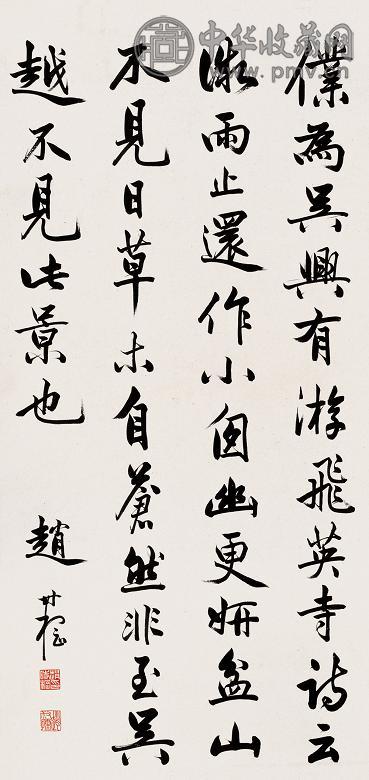 中华收藏网
www.pmv.cn
僕為吳興有游飛英寺詩云
微雨止還作小囪幽更妍盆山
不見日草木自蒼然非至吳
越不見此景也
趙